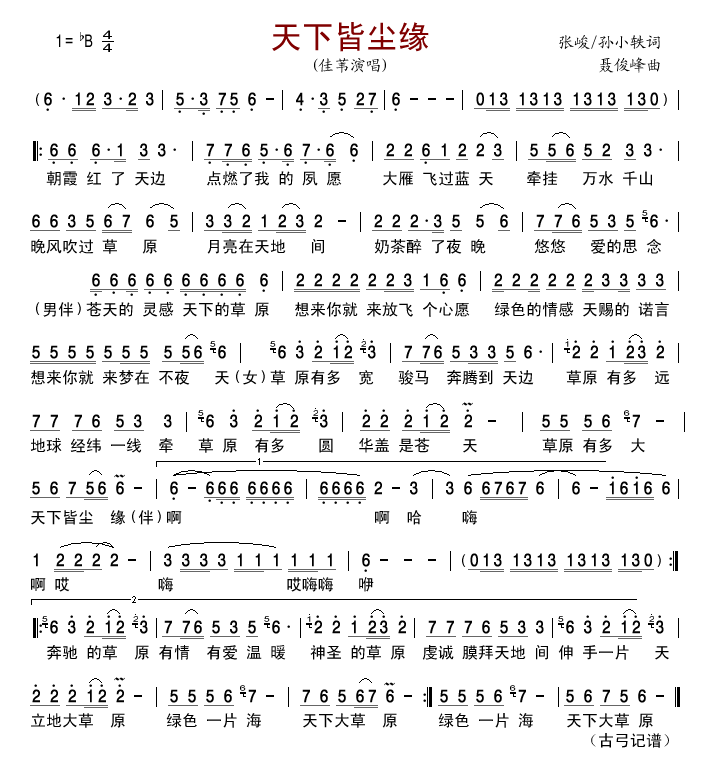 天下皆尘缘
1= ♭B 4/4
(佳苇演唱)
张峻/孙小轶词
聂俊峰曲
( 6 · 12 3 · 2 3 | 5 · 3 75 6 - | 4 · 3 5 27 | 6 - - - | 013 1313 1313 130 ) |
‖: 6 6 6 · 1 3 3 · | 7 7 6 5 · 6 7 · 6 6 | 2 2 6 1 2 2 3 | 5 5 6 5 2 3 3 · |
朝霞 红 了 天边 点燃了我 的 夙 愿 大雁 飞过蓝 天 牵挂 万水 千山
6 6 3 5 6 7 6 5 | 3 3 2 1 2 3 2 - | 2 2 2 · 3 5 5 6 | 7 7 6 5 3 5 5 6 · |
晚风吹过 草 原 月亮在天地 间 奶茶醉 了夜 晚 悠悠 爱的思 念
6 6 6 6 6 6 6 6 6 6 6 | 2 2 2 2 2 2 3 1 6 6 | 2 2 2 2 2 2 3 3 3 3 |
(男伴)苍天的 灵感 天下的草 原 想来你就 来放飞 个心愿 绿色的情感 天赐的 诺言
5 5 5 5 5 5 5 5 5 6 5 6 | 5 6 3 2 1 2 2 3 | 7 7 6 5 3 3 5 6 · | 1 2 2 1 2 3 2 |
想来你就 来梦在 不夜 天(女)草 原有多 宽 骏马 奔腾到 天边 草原 有多 远
7 7 7 6 5 3 3 | 5 6 3 2 1 2 2 3 | 2 2 2 1 2 2 - | 5 5 5 6 6 7 - |
地球 经纬 一线 牵 草 原 有多 圆 华盖 是苍 天 草原 有多 大
1
5 6 7 5 6 6 - | 6 - 6 6 6 6 6 6 6 | 6 6 6 6 2 - 3 | 3 6 6 7 6 7 6 | 6 - 1 6 1 6 6 |
天下皆尘 缘(伴)啊 啊 哈 嗨
1 2 2 2 2 - | 3 3 3 3 1 1 1 1 1 1 | 6 - - - | (013 1313 1313 130) :‖
啊 哎 嗨 哎嗨嗨 咿
2
‖: 5 6 3 2 1 2 2 3 | 7 7 6 5 3 5 5 6 · | 1 2 2 1 2 3 2 | 7 7 7 6 5 3 3 | 5 6 3 2 1 2 2 3 |
奔驰 的草 原 有情 有爱 温 暖 神圣 的草 原 虔诚 膜拜天地 间 伸 手一片 天
2 2 2 1 2 2 - | 5 5 5 6 6 7 - | 7 6 7 5 6 7 6 - :‖ 5 5 5 6 6 7 - | 5 6 7 5 6 6 - |
立地大草 原 绿色 一片 海 天下大草 原 绿色 一片 海 天下大草 原
（古弓记谱）